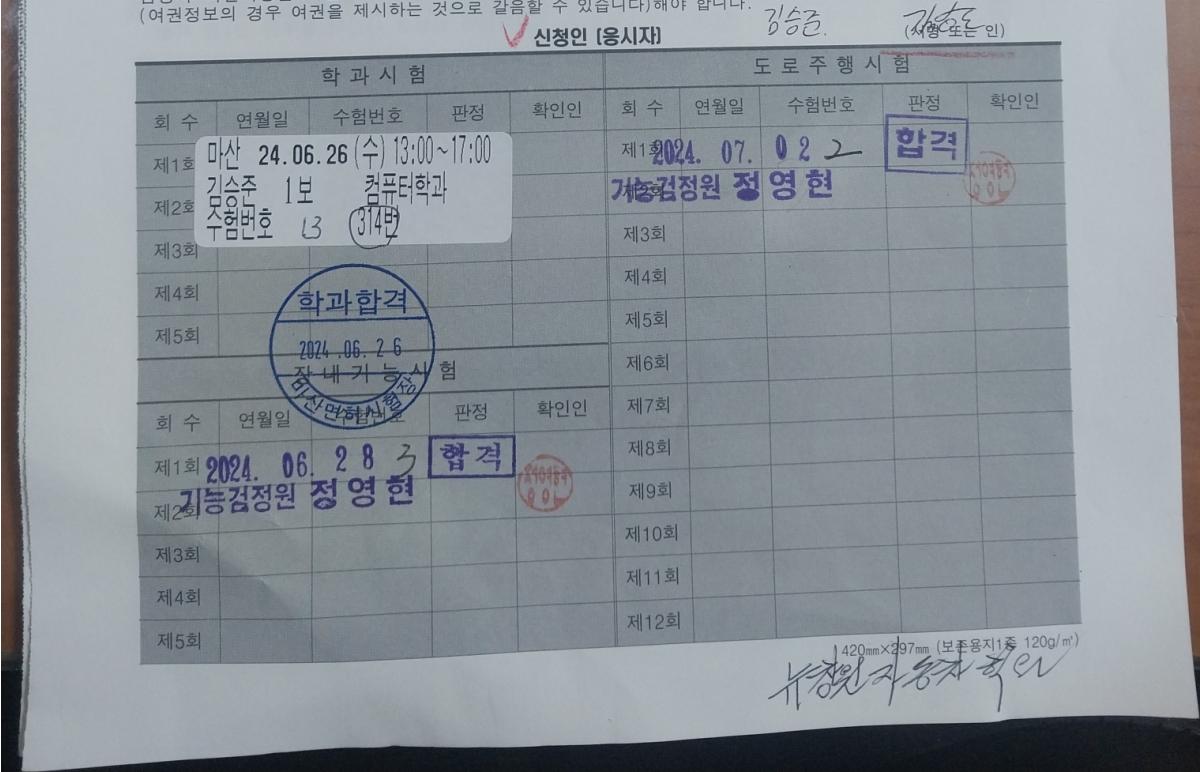 (여권정보의 경우 여권을 제시하는 것으로 갈음할 수 있습니다)해야 합니다.
신청인 (응시자) 김승준 (서명 또는 인)
학 과 시 험
회 수 연월일 수험번호 판정 확인인
제1회
마산 24.06.26 (수) 13:00~17:00
제2회
김승준 1보 컴퓨터학과
수험번호 13 314번
제3회
제4회
학과합격
제5회
2024.06.26
장 내 기 능 시 험
마산면허시험장
회 수 연월일 수험번호 판정 확인인
제1회 2024. 06. 28 3 합격
제2회 기능검정원 정영현
제3회
제4회
제5회
도 로 주 행 시 험
회 수 연월일 수험번호 판정 확인인
제1회 2024. 07. 02 2 합격
제2회 기능검정원 정영현
제3회
제4회
제5회
제6회
제7회
제8회
제9회
제10회
제11회
제12회
420㎜×297㎜ (보존용지1종 120g/㎡)
뉴창원자동차학원